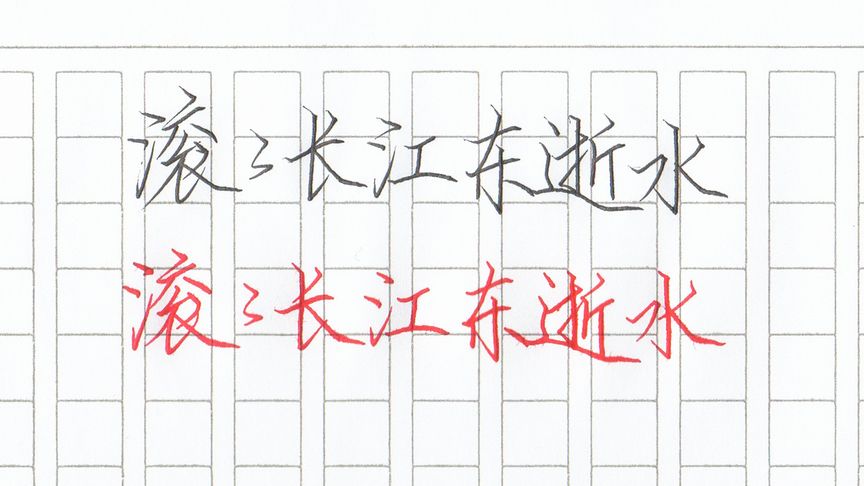 滚〻长江东逝水
滚〻长江东逝水